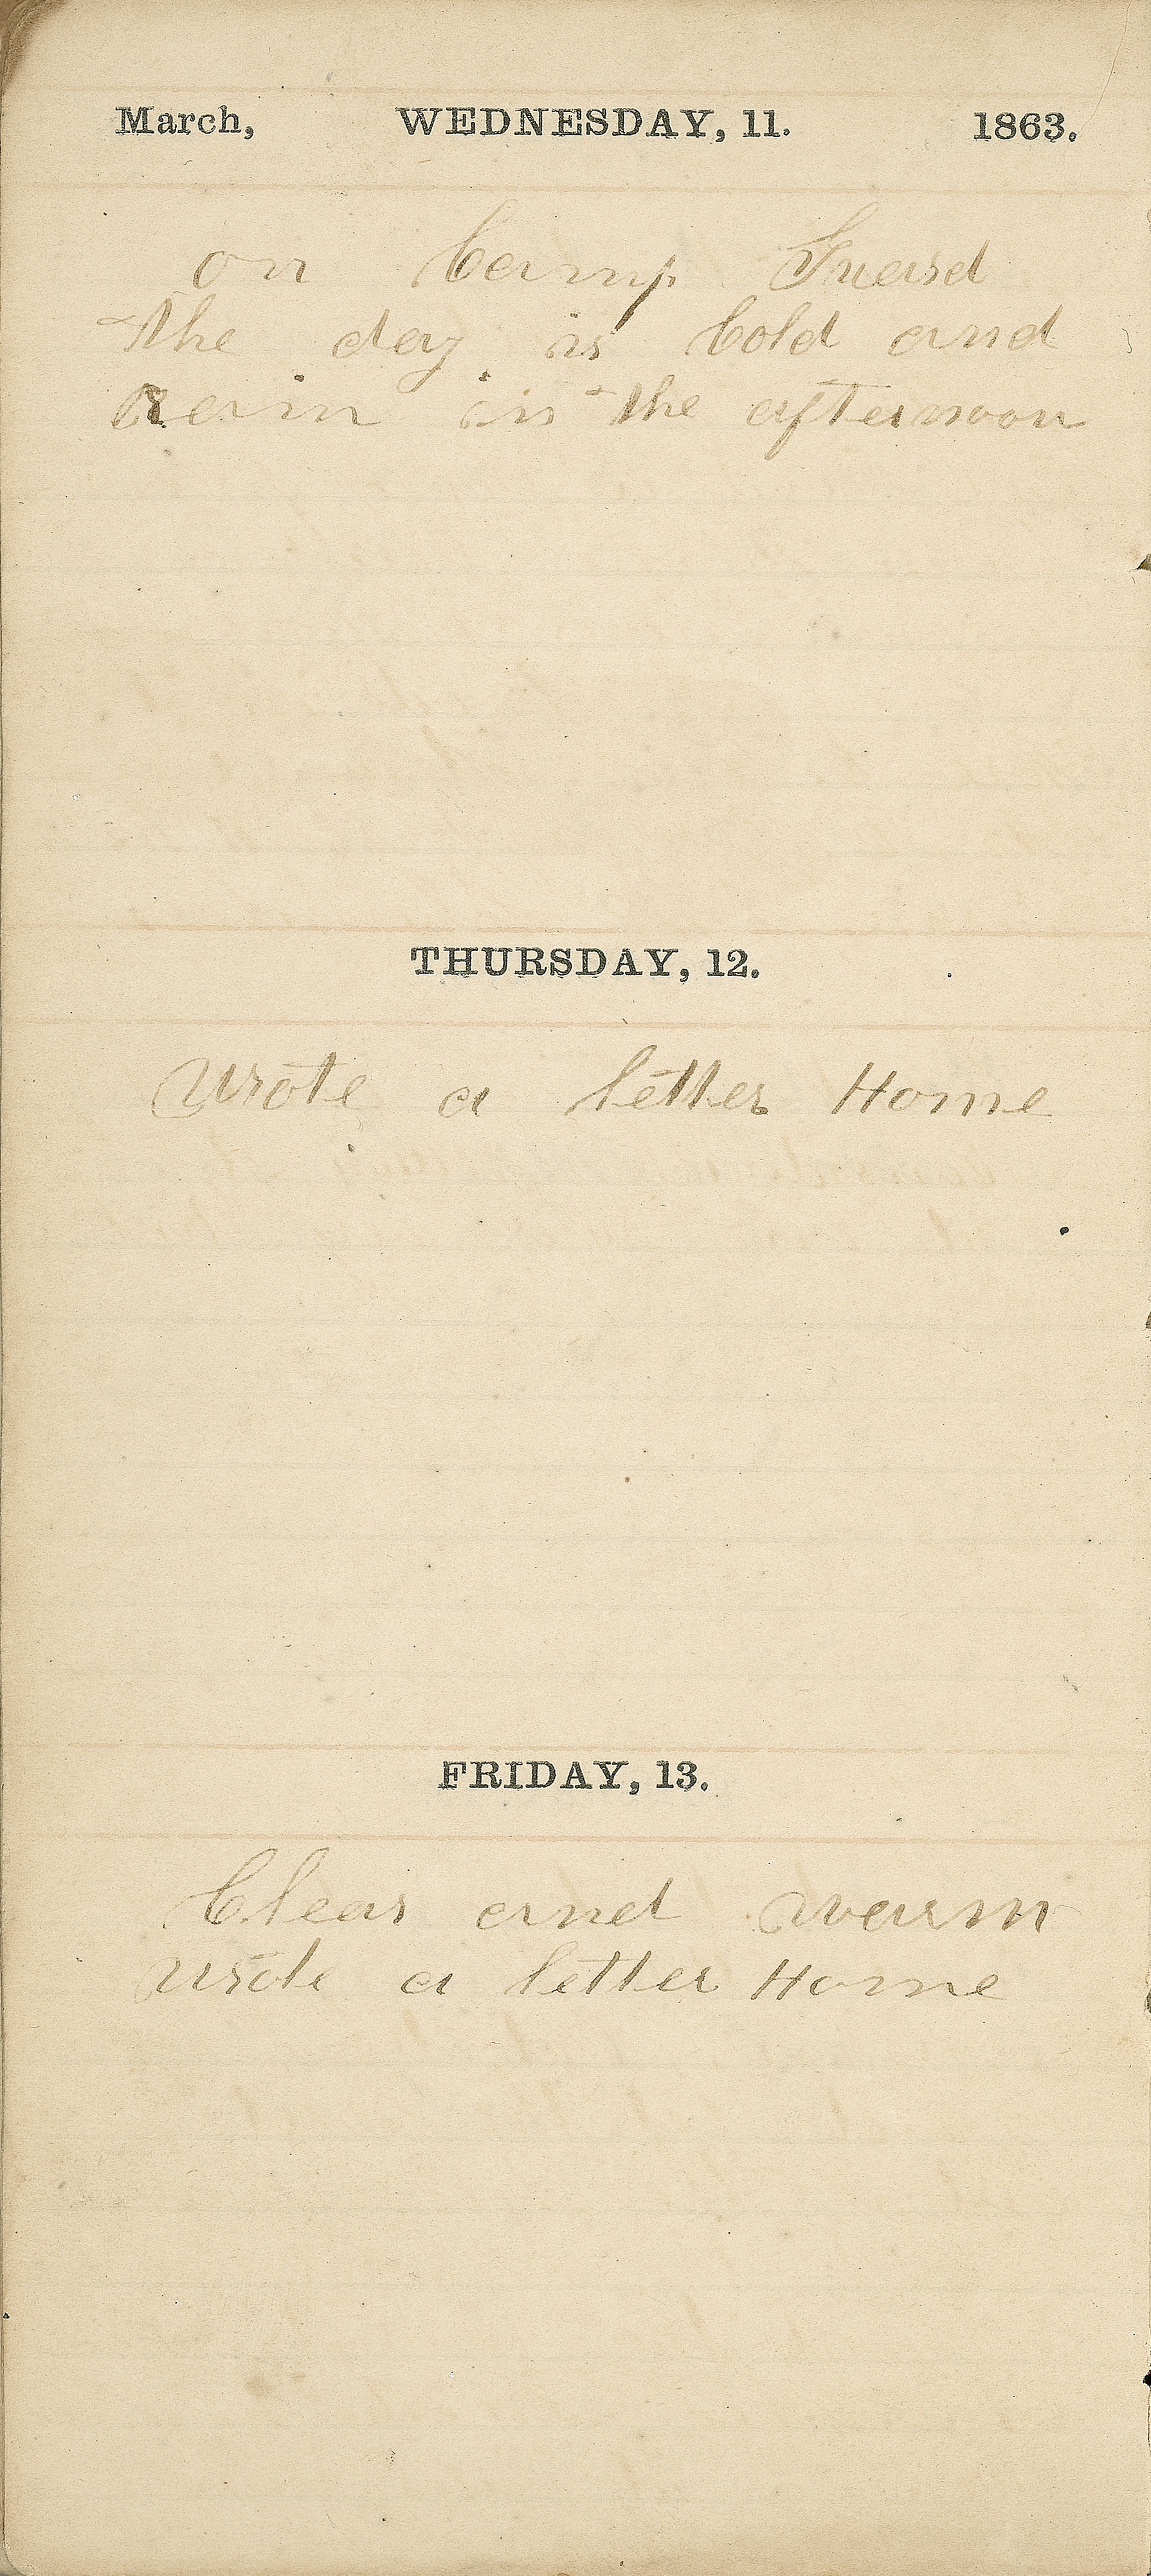 March, WEDNESDAY, 11. 1863.
on Camp Guard
the day is Cold and
Rain in the afternoon
THURSDAY, 12.
Wrote a letter Home
FRIDAY, 13.
Clear and warm
wrote a letter Home